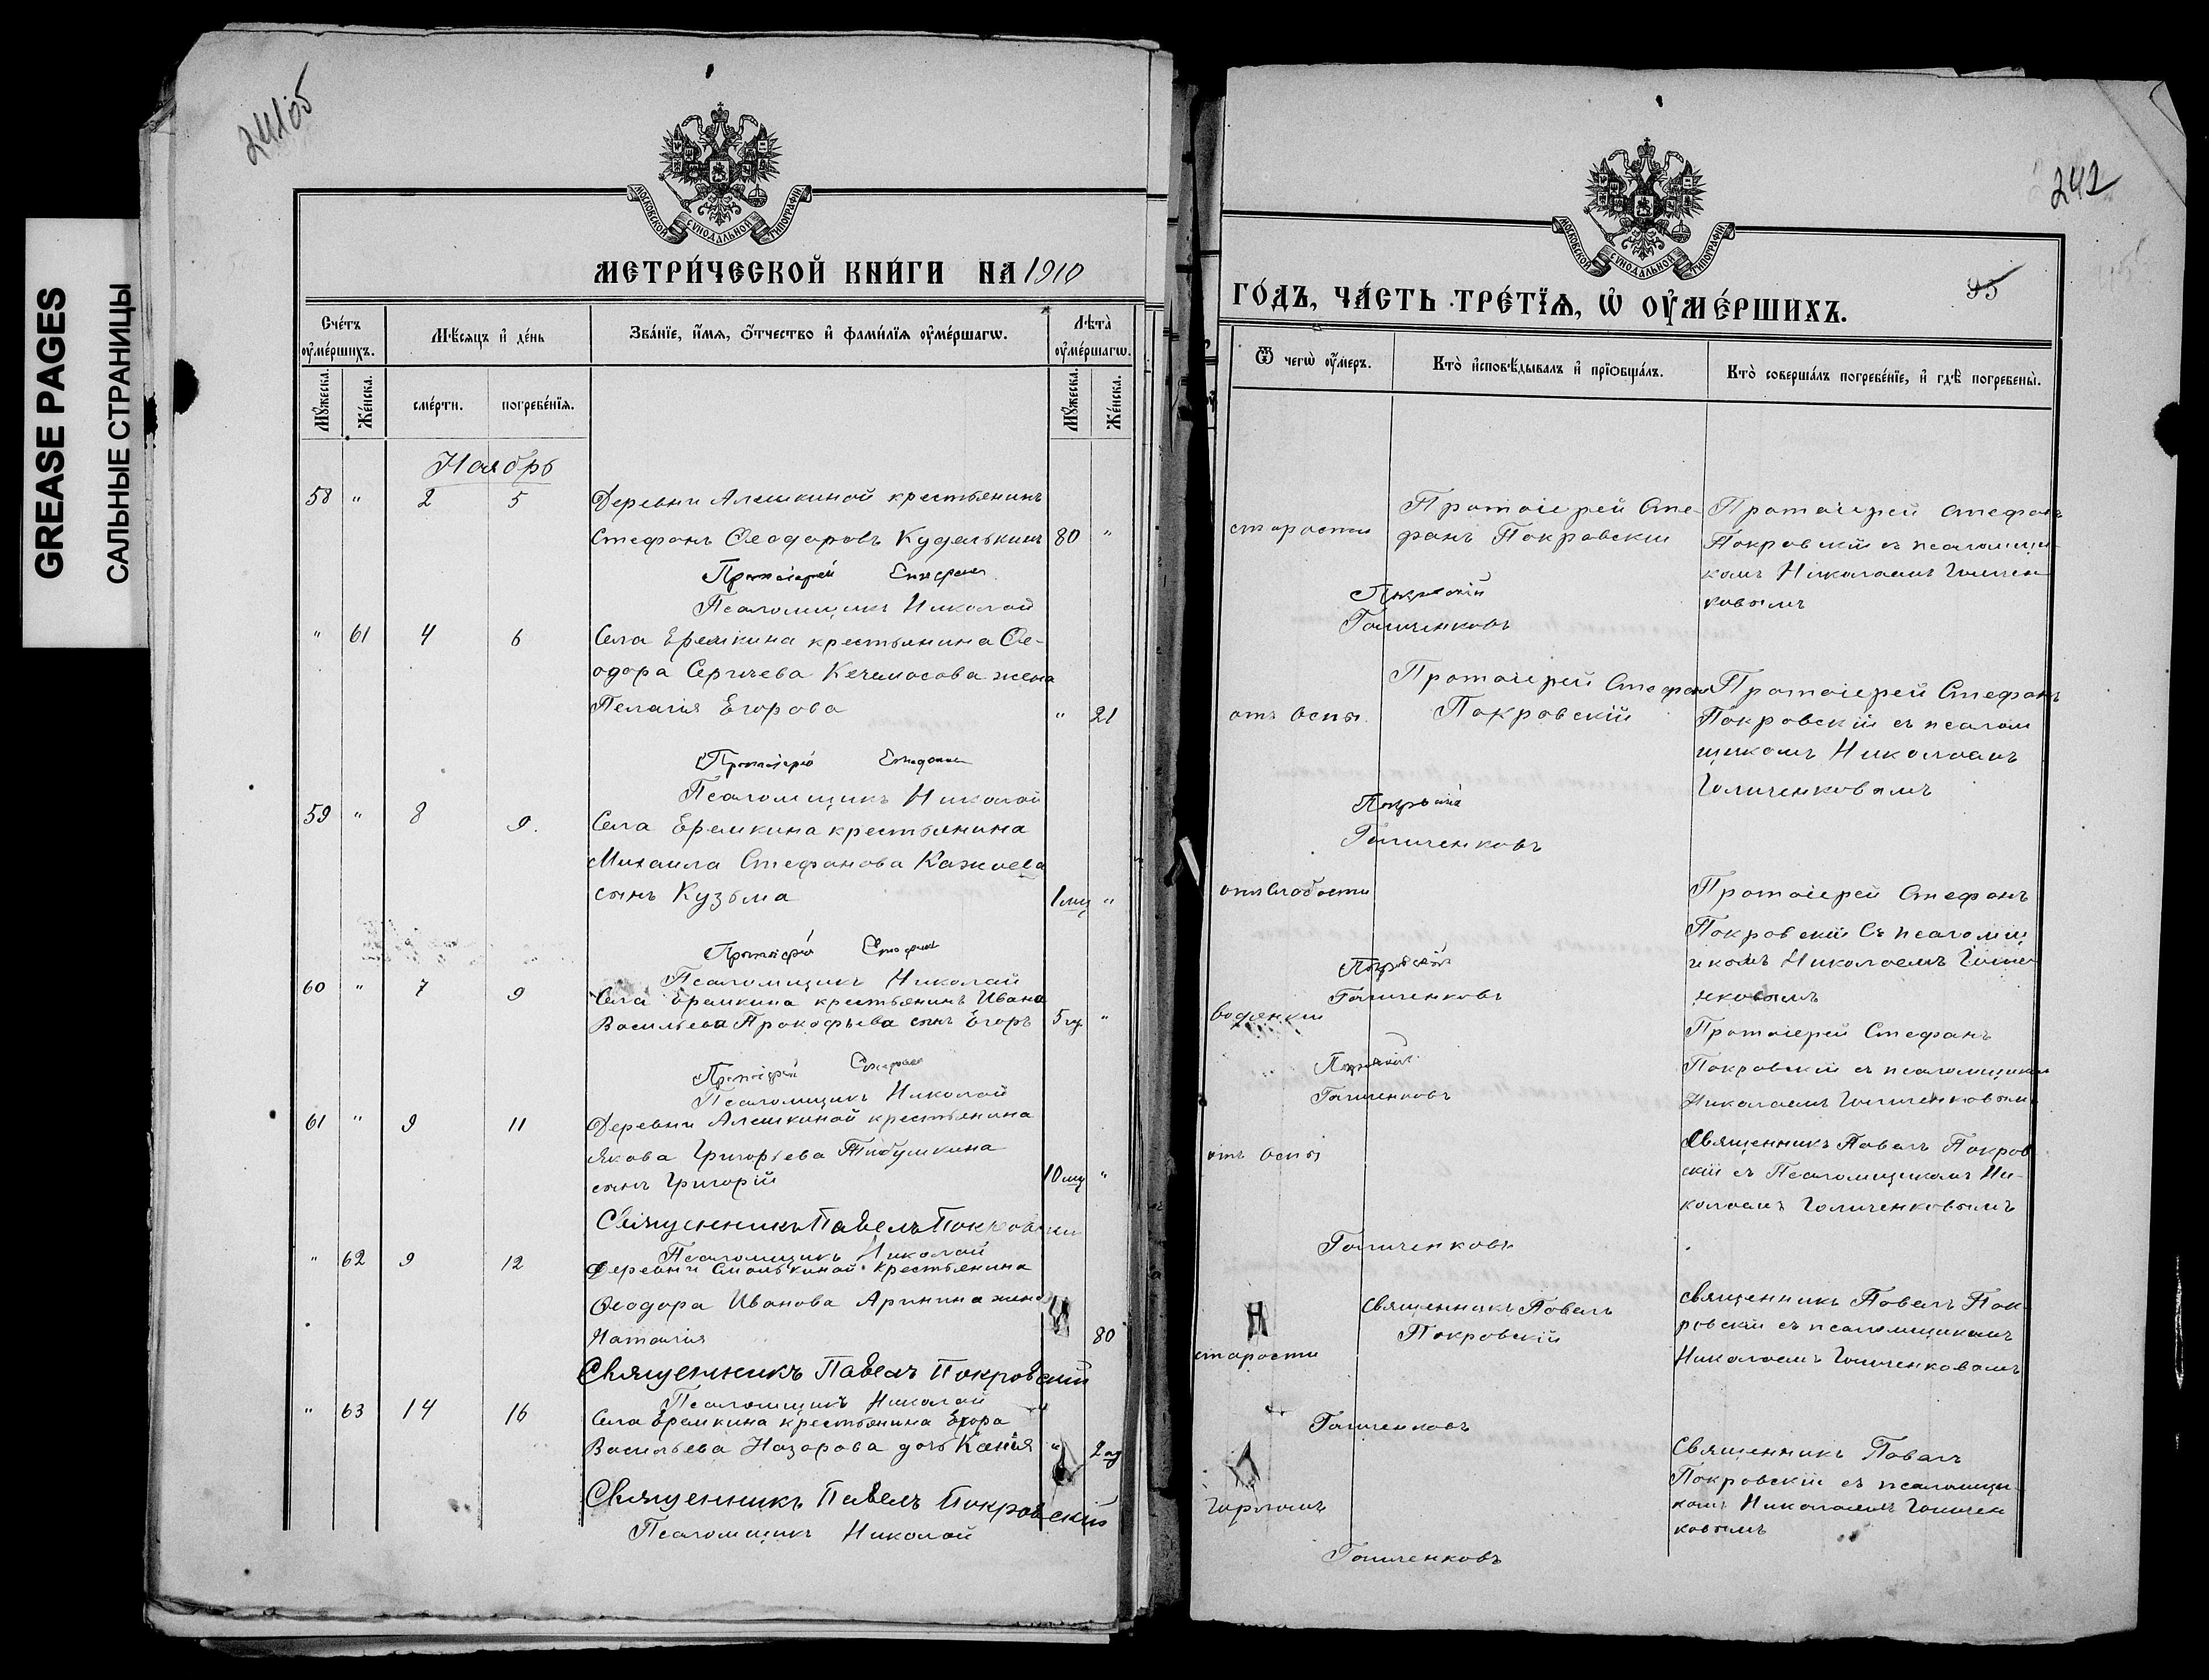 GREASE PAGES
САЛЬНЫЕ СТРАНИЦЫ
241об
МОСКОВСКОЙ СУНОДАЛЬНОЙ ТИПОГРАФІИ
МЕТРИ́ЧЕСКОЙ КНИ́ГИ НА 1910
Сче́тъ ᲂу҆ме́ршихъ.
Мѣ́сяцъ и҆ де́нь
Зва́нїе, и҆́мя, ѻ҆́тчество и҆ фами́лїя ᲂу҆ме́ршагѡ.
Лѣ́та ᲂу҆ме́ршагѡ.
Мꙋ́жеска.
Же́нска.
сме́рти.
погребе́нїя.
Мꙋ́жеска.
Же́нска.
Ноябрь
58 " 2 5 Деревни Алешкиной крестьянинъ
Стефанъ Ѳеодоровъ Куделькинъ 80 "
Протоіерей Стефанъ
Псаломщикъ Николай
" 61 4 6 Села Еремкина крестьянина Ѳе-
одора Сергѣева Кечемасова жена
Пелагія Егорова " 21
Протоіерей Стефанъ
Псаломщикъ Николай
59 " 8 9. Села Еремкина крестьянина
Михаила Стефанова Кажаева
сынъ Кузьма 1 мц "
Протоіерей Стефанъ
Псаломщикъ Николай
60 " 7 9 Села Еремкина крестьянинъ Ивана
Васильева Прокофьева сынъ Егоръ 5 "
Протоіерей Стефанъ
Псаломщикъ Николай
61 " 9 11 Деревни Алешкиной крестьянина
Якова Григорьева Тибушкина
сынъ Григорій 10 мц "
Священникъ Павелъ Покровскій
Псаломщикъ Николай
" 62 9 12 Деревни Смолькиной крестьянина
Ѳеодора Иванова Аринина жена
Наталія 80
Священникъ Павелъ Покровскій
Псаломщикъ Николай
" 63 14 16 Села Еремкина крестьянина Егора
Васильева Назарова дочь " 2
Священникъ Павелъ Покровскій
Псаломщикъ Николай
242
МОСКОВСКОЙ СУНОДАЛЬНОЙ ТИПОГРАФІИ
95
ГО́ДЪ, ЧА́СТЬ ТРЕ́ТЇЯ, Ѡ҆ ОУ҆МЕ́РШИХЪ.
Ѿ чегѡ̀ ᲂу҆́меръ.
Кто̀ и҆сповѣ́дывалъ и҆ прїѡбща́лъ.
Кто̀ соверша́лъ погребе́нїе, и҆ гдѣ̀ погребены̀.
старости
Протоіерей Сте-
фанъ Покровскій
Протоіерей Стефанъ
Покровскій съ псаломщи-
комъ Николаемъ Голичен-
ковымъ
Покровскій
Голиченковъ
отъ оспы.
Протоіерей Стефанъ
Покровскій
Протоіерей Стефанъ
Покровскій съ псалом
щикомъ Николаемъ
Голиченковымъ
Покровскій
Голиченковъ
отъ слабости
Протоіерей Стефанъ
Покровскій съ псаломщ
икомъ Николаемъ Голиче
нковымъ
Покровскій
Голиченковъ
водянки
Протоіерей Стефанъ
Покровскій съ псаломщикомъ
Николаемъ Голиченковымъ
Покровскій
Голиченковъ
отъ оспы
Священникъ Павелъ Покров
скій съ Псаломщикомъ Ни-
колаемъ Голиченковымъ
Голиченковъ
старости
Священникъ Павелъ
Покровскій
Священникъ Павелъ Пок-
ровскій съ псаломщикомъ
Николаемъ Голиченковымъ
Голиченковъ
горломъ
Священникъ Павелъ
Покровскій съ псаломщи-
комъ Николаемъ Голичен
ковымъ
Голиченковъ